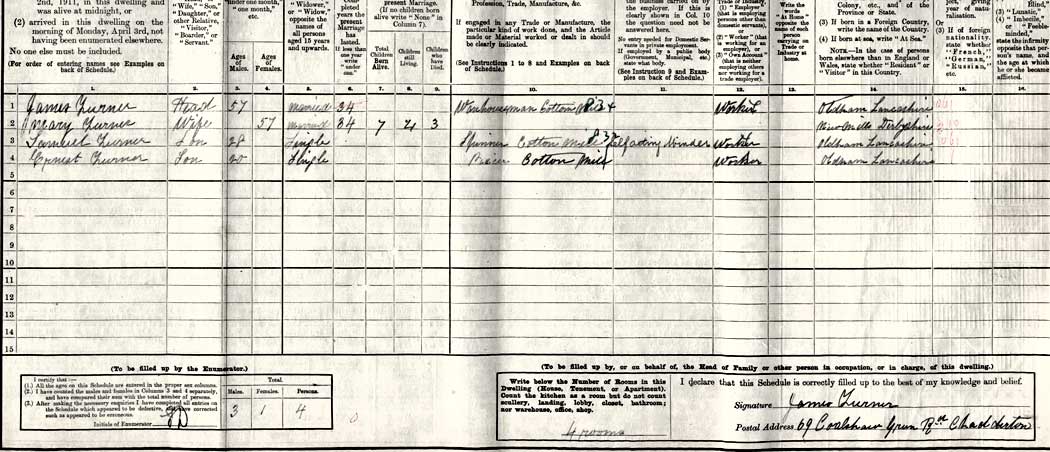 2nd, 1911, in this dwelling and
was alive at midnight, or
(2) arrived in this dwelling on the
morning of Monday, April 3rd, not
having been enumerated elsewhere.
No one else must be included.
(For order of entering names see Examples on
back of Schedule.)
"Wife," "Son,"
"Daughter," or
other Relative,
"Visitor,"
"Boarder," or
"Servant."
under one month,"
etc.
Ages
of
Males.
Ages
of
Females.
"Widower,"
or "Widow,"
opposite the
names of
all persons
aged 15 years
and upwards.
pleted
years the
present
Marriage
has
lasted.
If less than
one year
write
"under
one."
present Marriage.
(If no children born
alive write "None" in
Column 7).
Total
Children
Born
Alive.
Children
still
Living.
Children
who
have
Died.
Profession, Trade, Manufacture, &c.
If engaged in any Trade or Manufacture, the
particular kind of work done, and the Article
made or Material worked or dealt in should
be clearly indicated.
(See Instructions 1 to 8 and Examples on back
of Schedule.)
the business carried on by
the employer. If this is
clearly shown in Col. 10
the question need not be
answered here.
No entry needed for Domestic Servants
in private employment.
If employed by a public body
(Government, Municipal, etc.)
state what body.
(See Instruction 9 and Examples
on back of Schedule.)
(1) "Employer"
(that is employing
persons other than
domestic servants),
or
(2) "Worker" (that
is working for an
employer), or
(3) "Own Account"
(that is neither
employing others nor
working for a trade
employer).
Write the
words
"At Home"
opposite the
name of each
person
carrying on
Trade or
Industry at
home.
Colony, etc., and of the
Province or State.
(3) If born in a Foreign Country,
write the name of the Country.
(4) If born at sea, write "At Sea."
NOTE.—In the case of persons
born elsewhere than in England or
Wales, state whether "Resident" or
"Visitor" in this Country.
year of naturalisation.
Or
(3) If of foreign
nationality,
state whether
"French,"
"German,"
"Russian,"
etc.
Blind,"
(3) "Lunatic,"
(4) "Imbecile,"
or "Feeble-minded,"
state the infirmity
opposite that person's
name, and
the age at which
he or she became
afflicted.
1. 2. 3. 4. 5. 6. 7. 8. 9. 10. 11. 12. 13. 14. 15. 16.
1 James Turner Head 57 Married 34 Warehouseman Cotton Mill Worker Oldham Lancashire
2 Mary Turner Wife 57 Married 34 7 4 3 Derbyshire
3 Samuel Turner Son 28 Single Spinner Cotton Mill Selfacting Minder Worker Oldham Lancashire
4 Ernest Turner Son 20 Single Piecer Cotton Mill Worker Oldham Lancashire
5
6
7
8
9
10
11
12
13
14
15
(To be filled up by the Enumerator.)
I certify that:—
(1.) All the ages on this Schedule are entered in the proper sex columns.
(2.) I have counted the males and females in Columns 3 and 4 separately,
and have compared their sum with the total number of persons.
(3.) After making the necessary enquiries I have completed all entries on
the Schedule which appeared to be defective, and have corrected
such as appeared to be erroneous.
Initials of Enumerator
Total.
Males. Females. Persons.
3 1 4
(To be filled up by, or on behalf of, the Head of Family or other person in occupation, or in charge, of this dwelling.)
Write below the Number of Rooms in this
Dwelling (House, Tenement, or Apartment).
Count the kitchen as a room but do not count
scullery, landing, lobby, closet, bathroom;
nor warehouse, office, shop.
4 rooms
I declare that this Schedule is correctly filled up to the best of my knowledge and belief.
Signature James Turner
Postal Address 69 Coalshaw Green Rd Chadderton